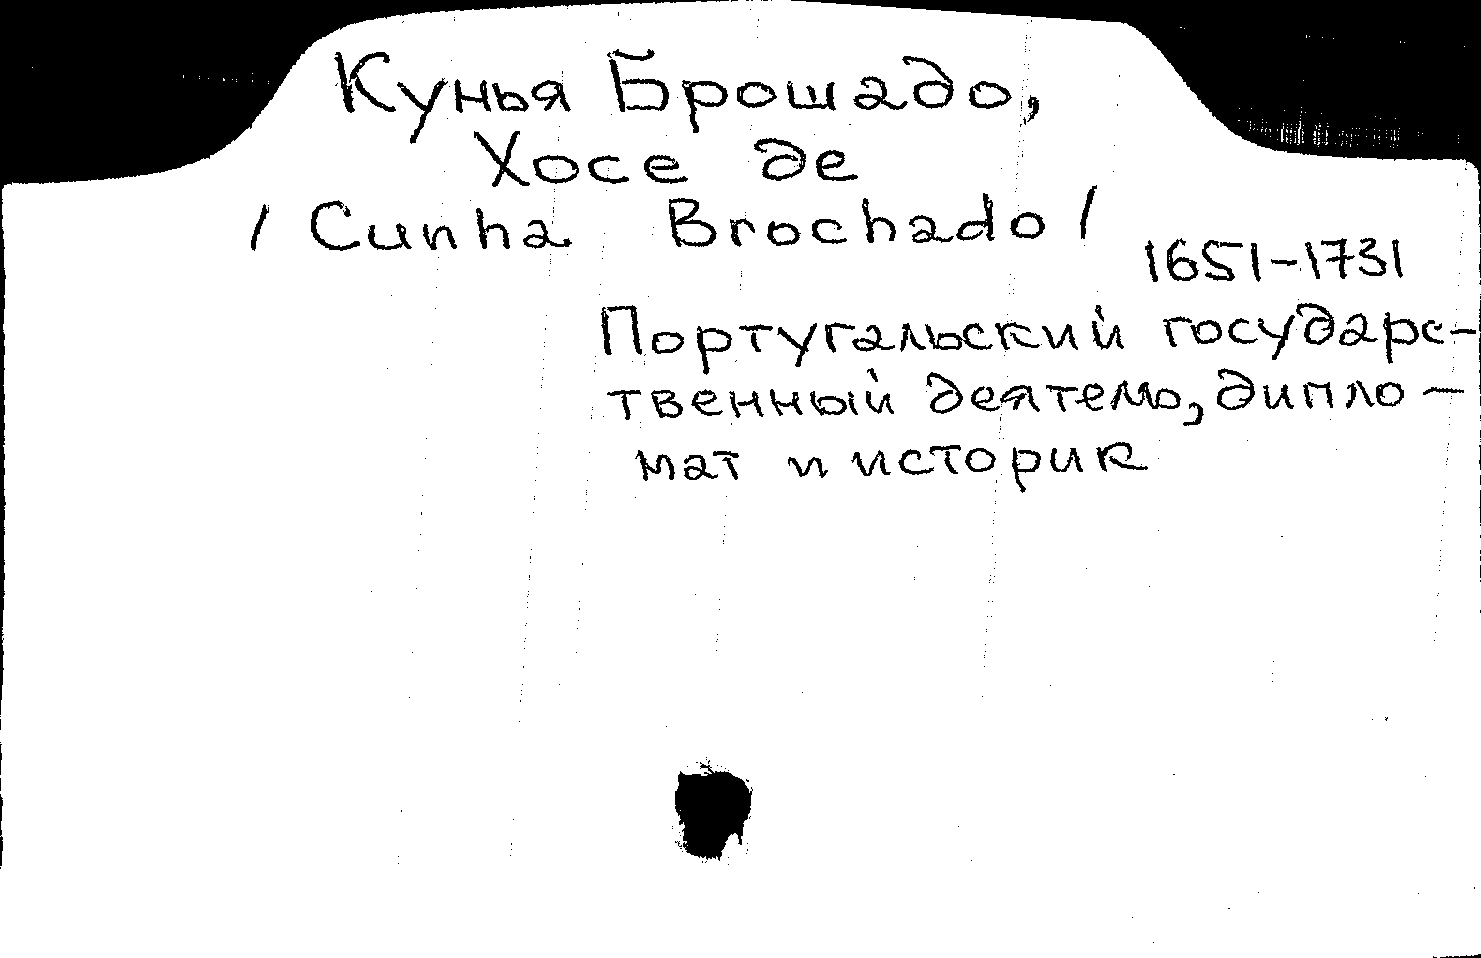 Кунья Брошадо,
Хосе де
/ Cunha Brochado /
1651-1731
Португальский государс-
твенный деятель, дипло-
мат и историк